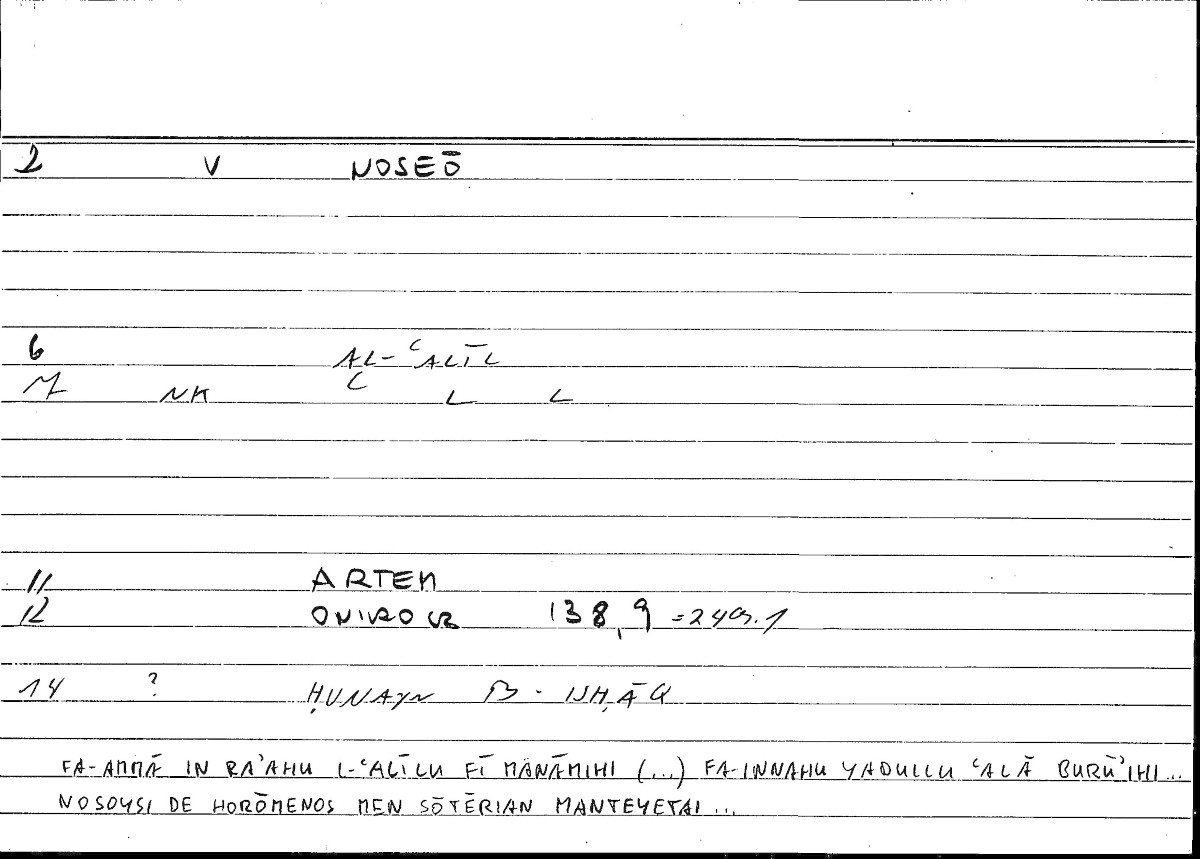 2 V NOSEŌ
6 AL-ʿALĪL
M NK ʿ L L
11 ARTEM
12 ONIROCR 138,9 =249.1
14 ? ḤUNAYN B. ISḤĀQ
FA-AMMĀ IN RA'AHU L-ʿALĪLU FĪ MANĀMIHI (...) FA-INNAHU YADULLU ʿALĀ BURŪ'IHI...
NOSOYSI DE HORŌMENOS MEN SŌTĒRIAN MANTEYETAI...